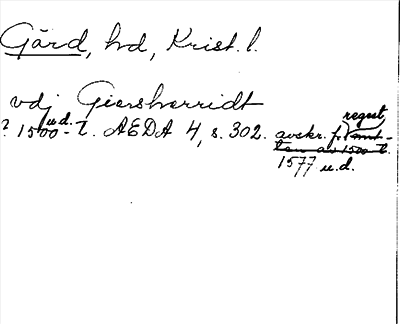 Gärd, hd, Krist. l.
vdj Giersherridt
? 1500-t. u.d. AEDA 4, s. 302. avskr. f. regest
1577 u.d.